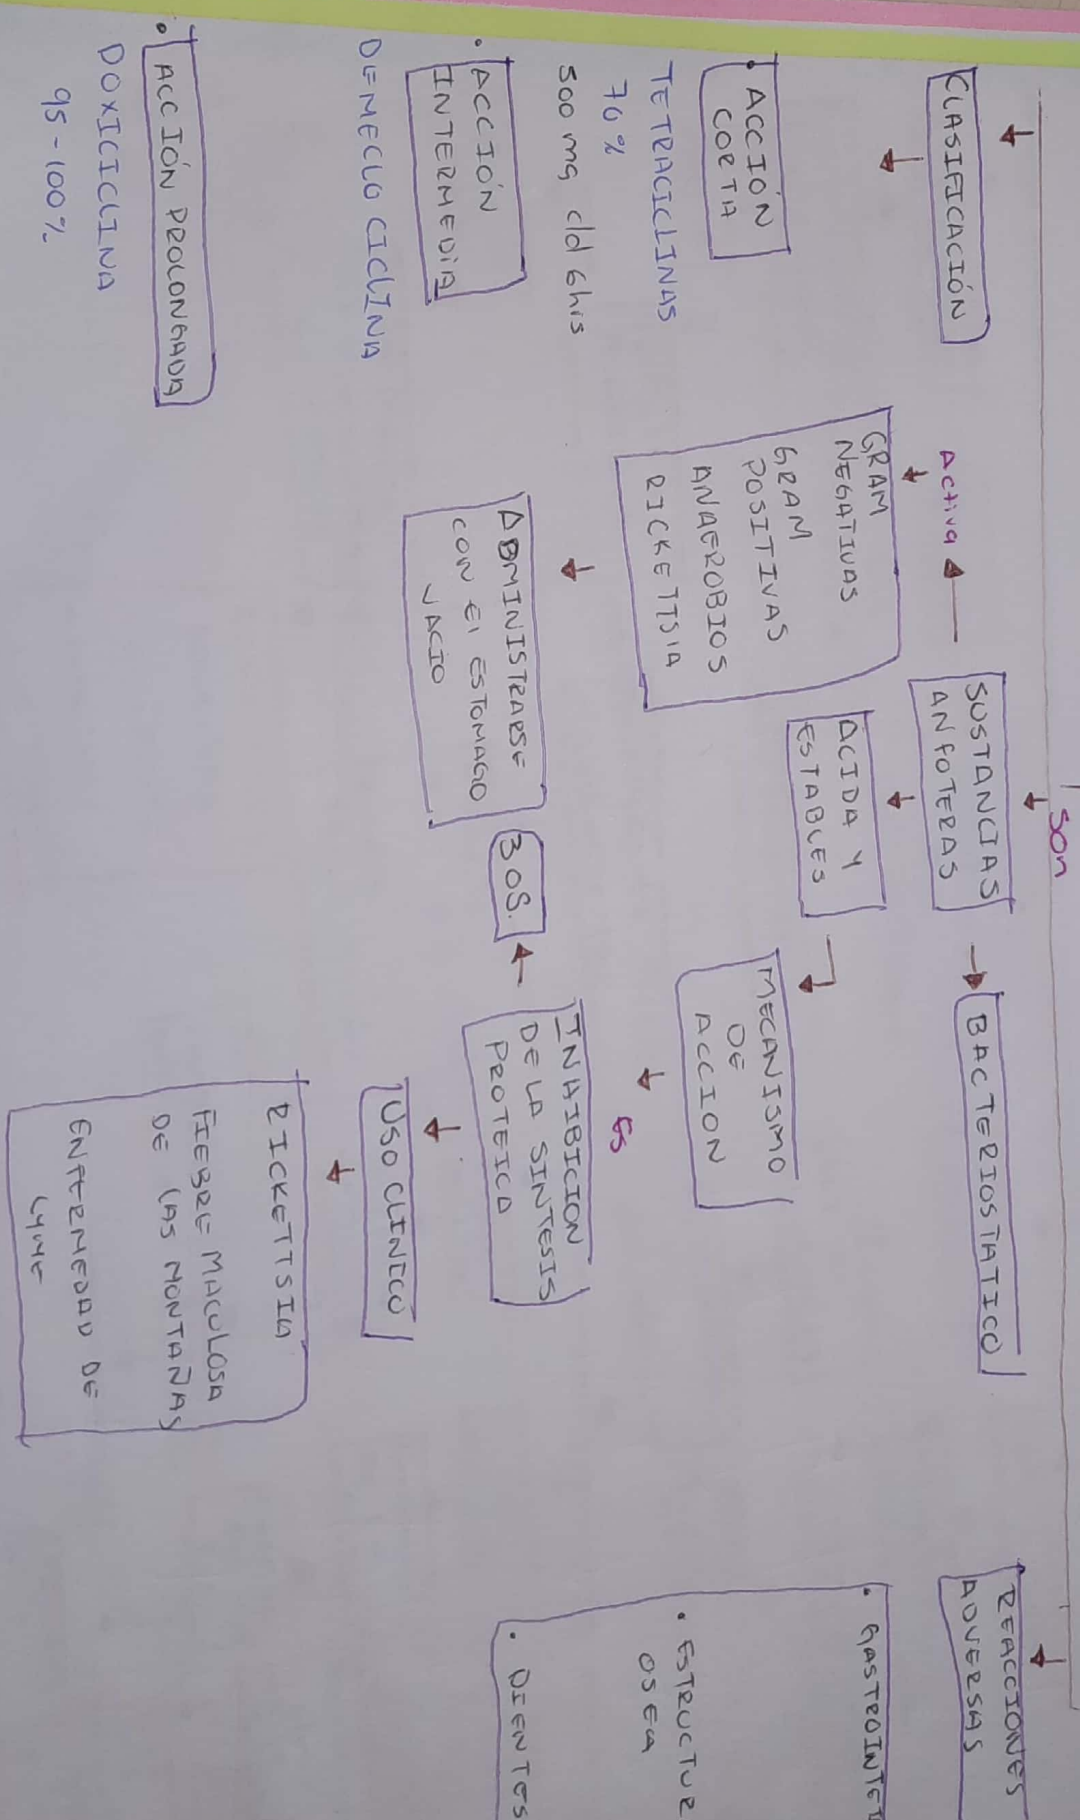 CLASIFICACIÓN
• ACCIÓN
CORTA
TETRACICLINAS
70%
500 mg c/d 6hrs
• ACCIÓN
INTERMEDIA
DEMECLO CICLINA
• ACCIÓN PROLONGADA
DOXICICLINA
95-100%
Son
SUSTANCIAS
ANFOTERAS
Activa
GRAM
NEGATIVAS
GRAM
POSITIVAS
ANAEROBIOS
RICKETTSIA
ADMINISTRARSE
CON El ESTOMAGO
VACIO
ACIDA Y
ESTABLES
BACTERIOSTATICO
MECANISMO
DE
ACCION
ES
INAIBICION
DE LA SINTESIS
PROTEICA
30S.
USO CLINICO
RICKETTSIA
FIEBRE MACULOSA
DE LAS MONTAÑAS
ENFERMEDAD DE
LYME
REACCIONES
ADVERSAS
• GASTROINTE
• ESTRUCTUR
OSEA
• DIENTES